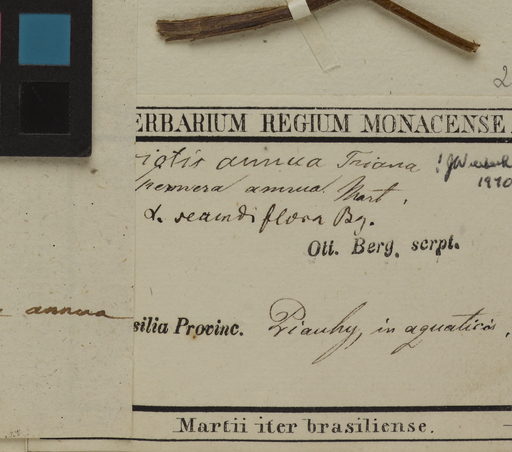 ERBARIUM REGIUM MONACENSE
iotis annua Triana !
1970
annua Mart.
α. secundiflora Bg.
Ott. Berg. scrpt.
annua
silia Provinc. Piauhy, in aquaticis,
Martii iter brasiliense.
2